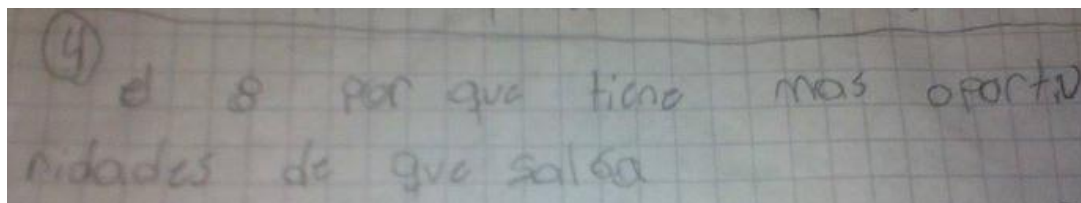 4
el 8 por que tiene mas oportu
nidades de que salga